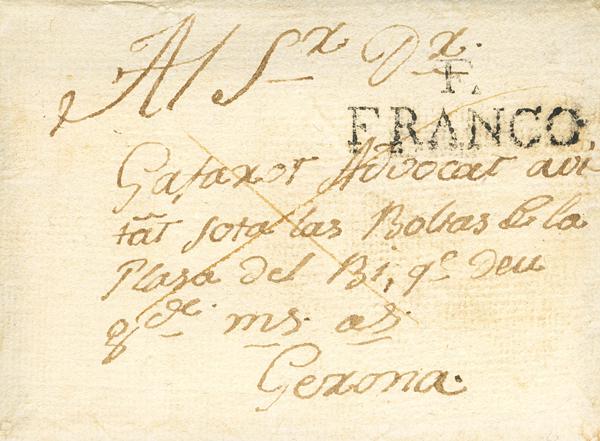 Al Sr. Dr.
F.
FRANCO
Gafaror Advocat avi
tāt sota las Voltas de la
Plasa del Bi, qe. Deu
gde. ms. as.
Gerona.